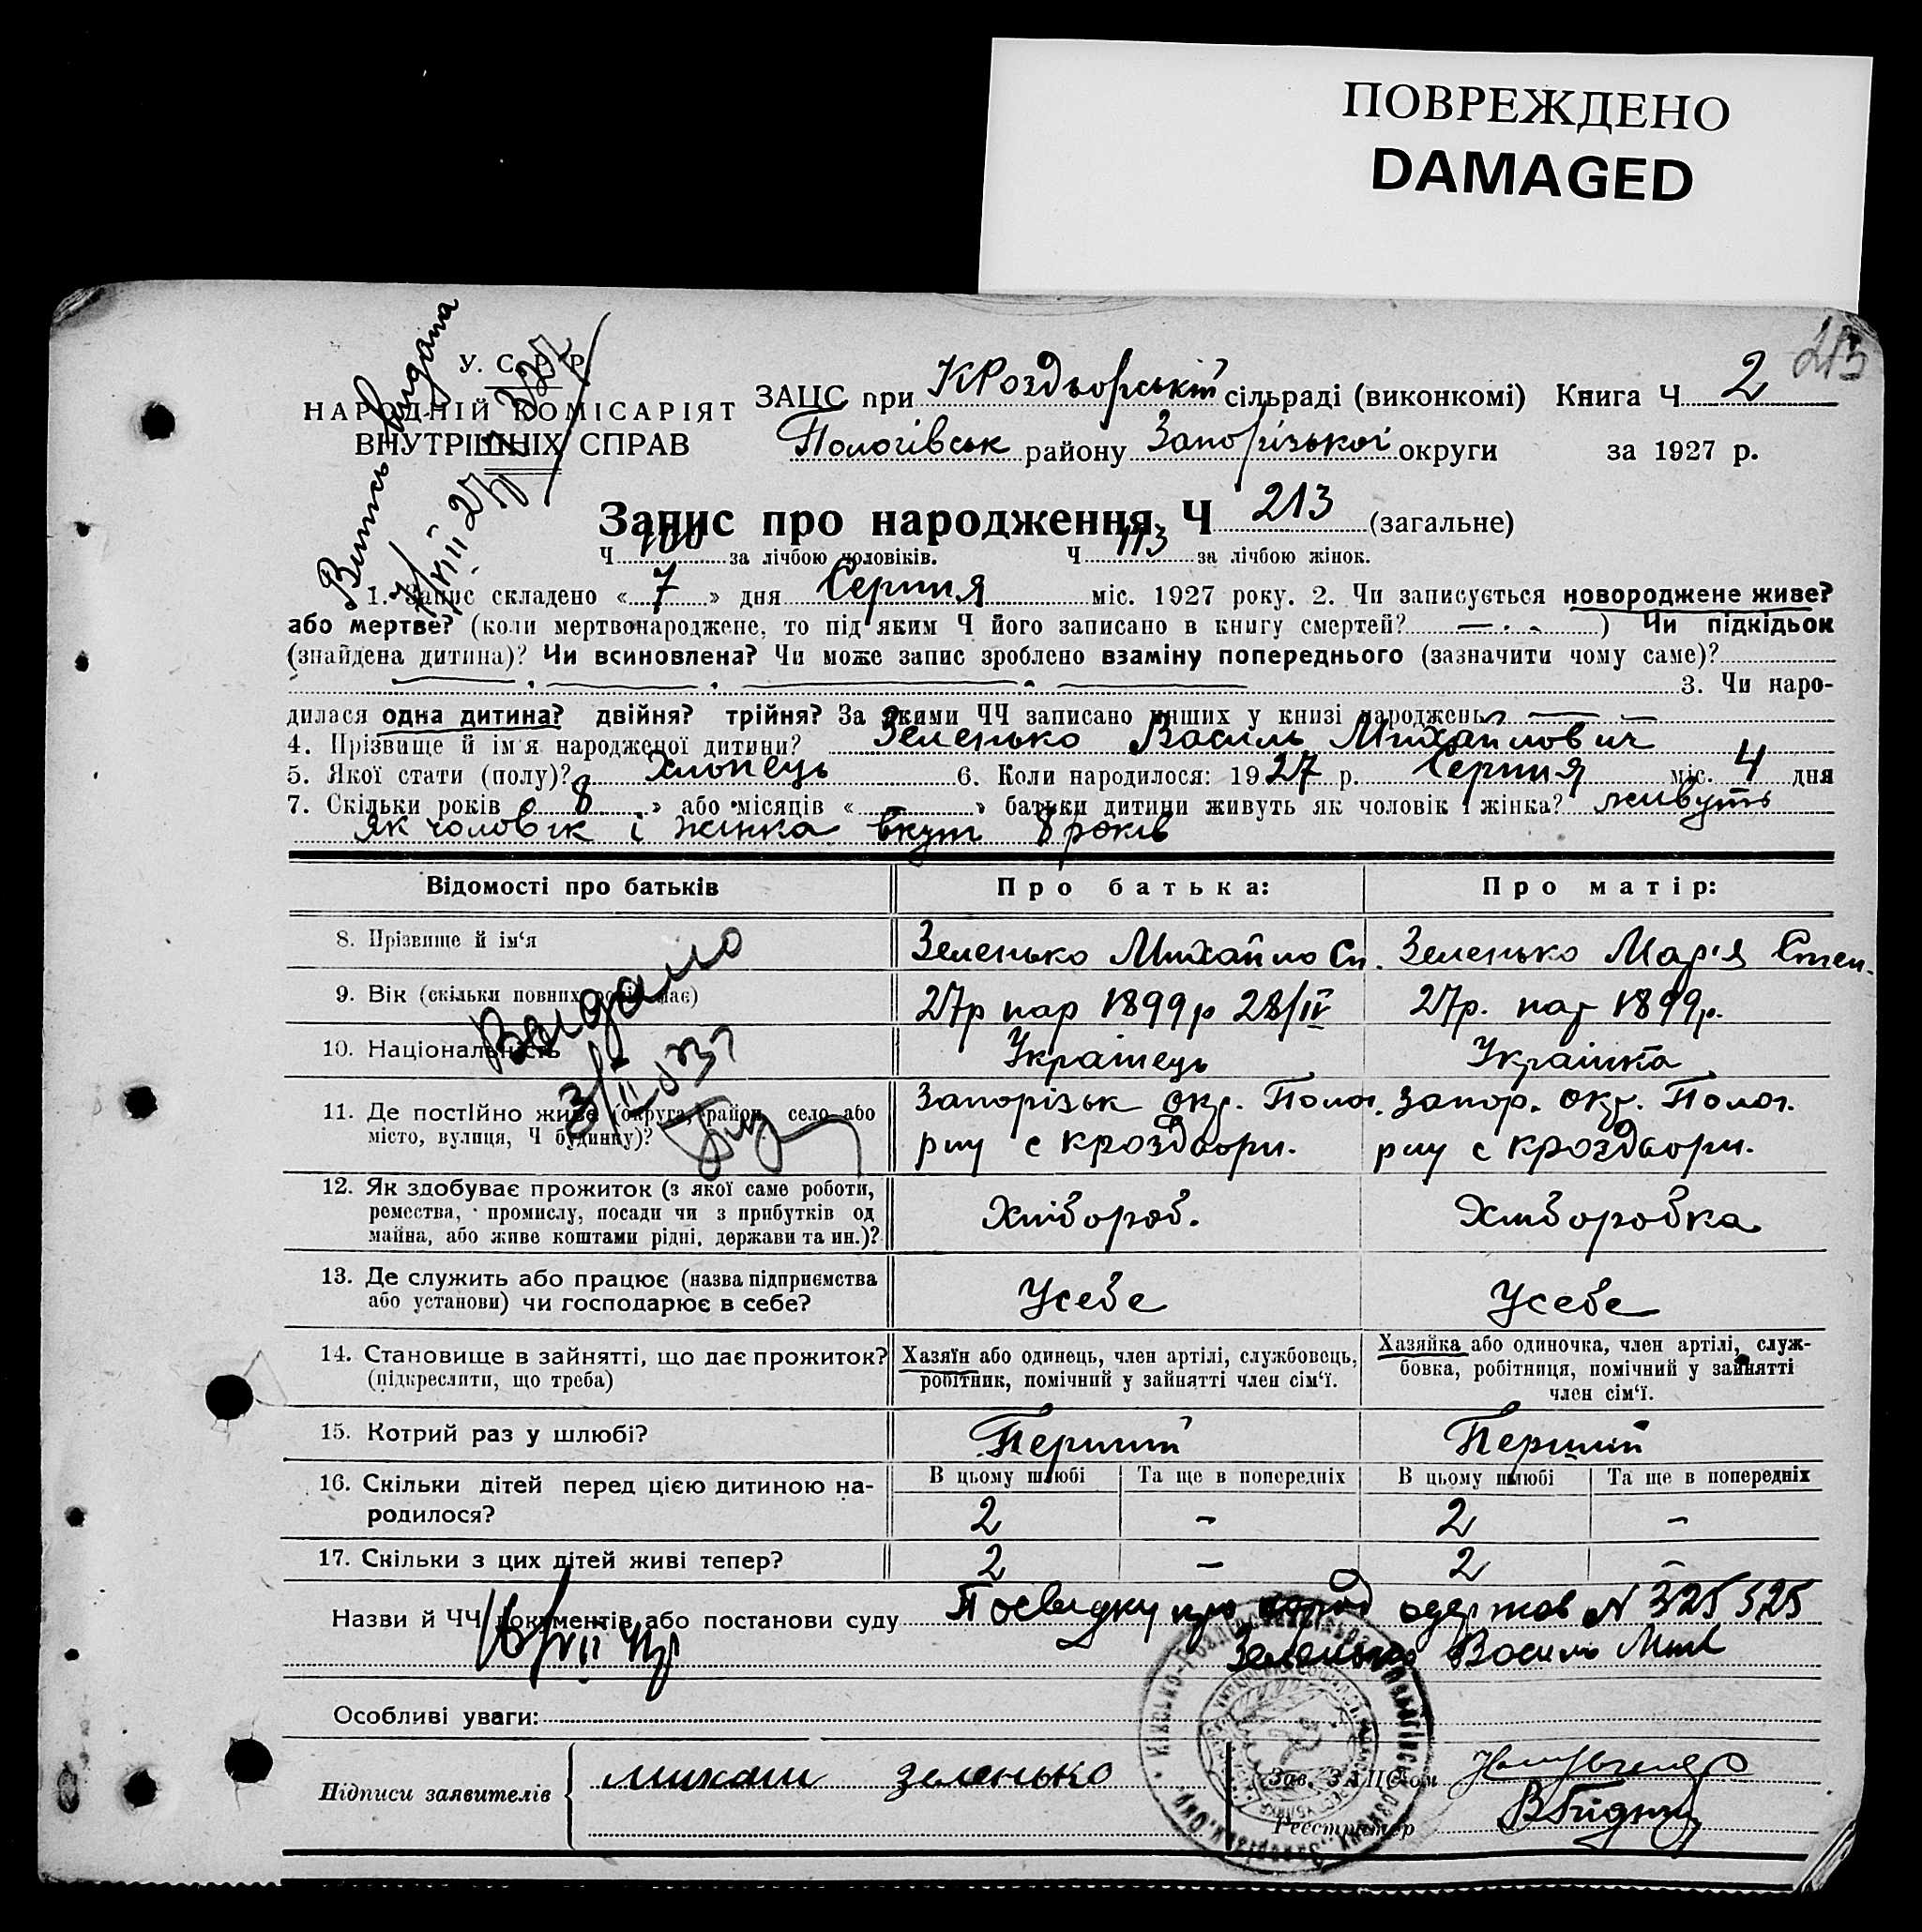 ПОВРЕЖДЕНО
DAMAGED
213
Витись видана
7/VIII 27
У. С. Р. Р.
НАРОДНІЙ КОМІСАРІЯТ
ВНУТРІШНІХ СПРАВ
ЗАЦС при КРоздворській сільраді (виконкомі) Книга Ч 2
Пологівськ району Запорізької округи за 1927 р.
Запис про народження Ч 213 (загальне)
Ч 100 за лічбою чоловіків. Ч 113 за лічбою жінок.
1. Запис складено « 7 » дня Серпня міс. 1927 року. 2. Чи записується новороджене живе?
або мертве? (коли мертвонароджене, то під яким Ч його записано в книгу смертей? ) Чи підкідьок
(знайдена дитина)? Чи всиновлена? Чи може запис зроблено взаміну попереднього (зазначити чому саме)?
3. Чи наро-
дилася одна дитина? двійня? трійня? За якими ЧЧ записано инших у книзі народжень?
4. Прізвище й ім'я народженої дитини? Зеленько Василь Михайлович
5. Якої стати (полу)? Хлопець 6. Коли народилося: 1927 р. Серпня міс. 4 дня
7. Скільки років « 8 » або місяців « » батьки дитини живуть як чоловік і жінка? живуть
як чоловік і жінка вкуп 8 років
Відомості про батьків Про батька: Про матір:
8. Прізвище й ім'я Зеленько Михайло Сп. Зеленько Мар'я Степ.
9. Вік (скільки повних років має) 27р нар 1899р 28/IV 27р. нар 1899р.
10. Національність Українець Українка
Видано
11. Де постійно живе (округа, район, село або місто, вулиця, Ч будинку)? Запорізьк окр. Полог. рну с Кроздвори. Запор. окр. Полог. рну с Кроздвори.
12. Як здобуває прожиток (з якої саме роботи, ремества, промислу, посади чи з прибутків од майна, або живе коштами рідні, держави та ин.)? Хлібороб. Хліборобка
13. Де служить або працює (назва підприємства або установи) чи господарює в себе? Усебе Усебе
14. Становище в зайнятті, що дає прожиток? (підкреслити, що треба) Хазяїн або одинець, член артілі, службовець, робітник, помічний у зайнятті член сім'ї. Хазяйка або одиночка, член артілі, служ-бовка, робітниця, помічний у зайнятті член сім'ї.
15. Котрий раз у шлюбі? Перший Перший
16. Скільки дітей перед цією дитиною на-родилося? В цьому шлюбі Та ще в попередніх В цьому шлюбі Та ще в попередніх
2 - 2 -
17. Скільки з цих дітей живі тепер? 2 - 2 -
Назви й ЧЧ документів або постанови суду Посвідку про народ одержав N 325525
Зеленько Василь Мих
Особливі уваги:
Підписи заявителів Михаил Зеленько Зав. ЗАЦС'ом
Реєстратор